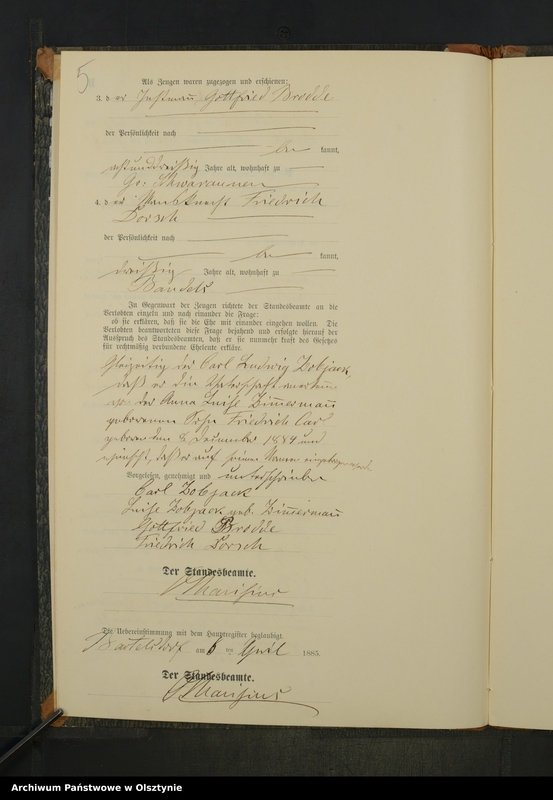 5
Als Zeugen waren zugezogen und erschienen:
3. d er Instmann Gottfried Brodde
der Persönlichkeit nach
be kannt,
achtunddreißig Jahre alt, wohnhaft zu
Gr: Schwaraunen
4. d er Friedrich
Dorsch
der Persönlichkeit nach
be kannt,
dreißig Jahre alt, wohnhaft zu
Bandels
In Gegenwart der Zeugen richtete der Standesbeamte an die
Verlobten einzeln und nach einander die Frage:
ob sie erklären, daß sie die Ehe mit einander eingehen wollen. Die
Verlobten beantworteten diese Frage bejahend und erfolgte hierauf der
Ausspruch des Standesbeamten, daß er sie nunmehr kraft des Gesetzes
für rechtmäßig verbundene Eheleute erkläre.
Carl Ludwig Zobjack
daß er die Vaterschaft
der Anna Luise Zimmermann
geborenen Sohn Friedrich Carl
geboren den 8 Dezember 1884 und
daß er auf seinen Namen eingetragen
Vorgelesen, genehmigt und unterschrieben
Carl Zobjack
Luise Zobjack geb. Zimmermann
Gottfried Brodde
Friedrich Dorsch
Der Standesbeamte.
Die Uebereinstimmung mit dem Hauptregister beglaubigt.
am 6 ten April 1885.
Der Standesbeamte.
Archiwum Państwowe w Olsztynie